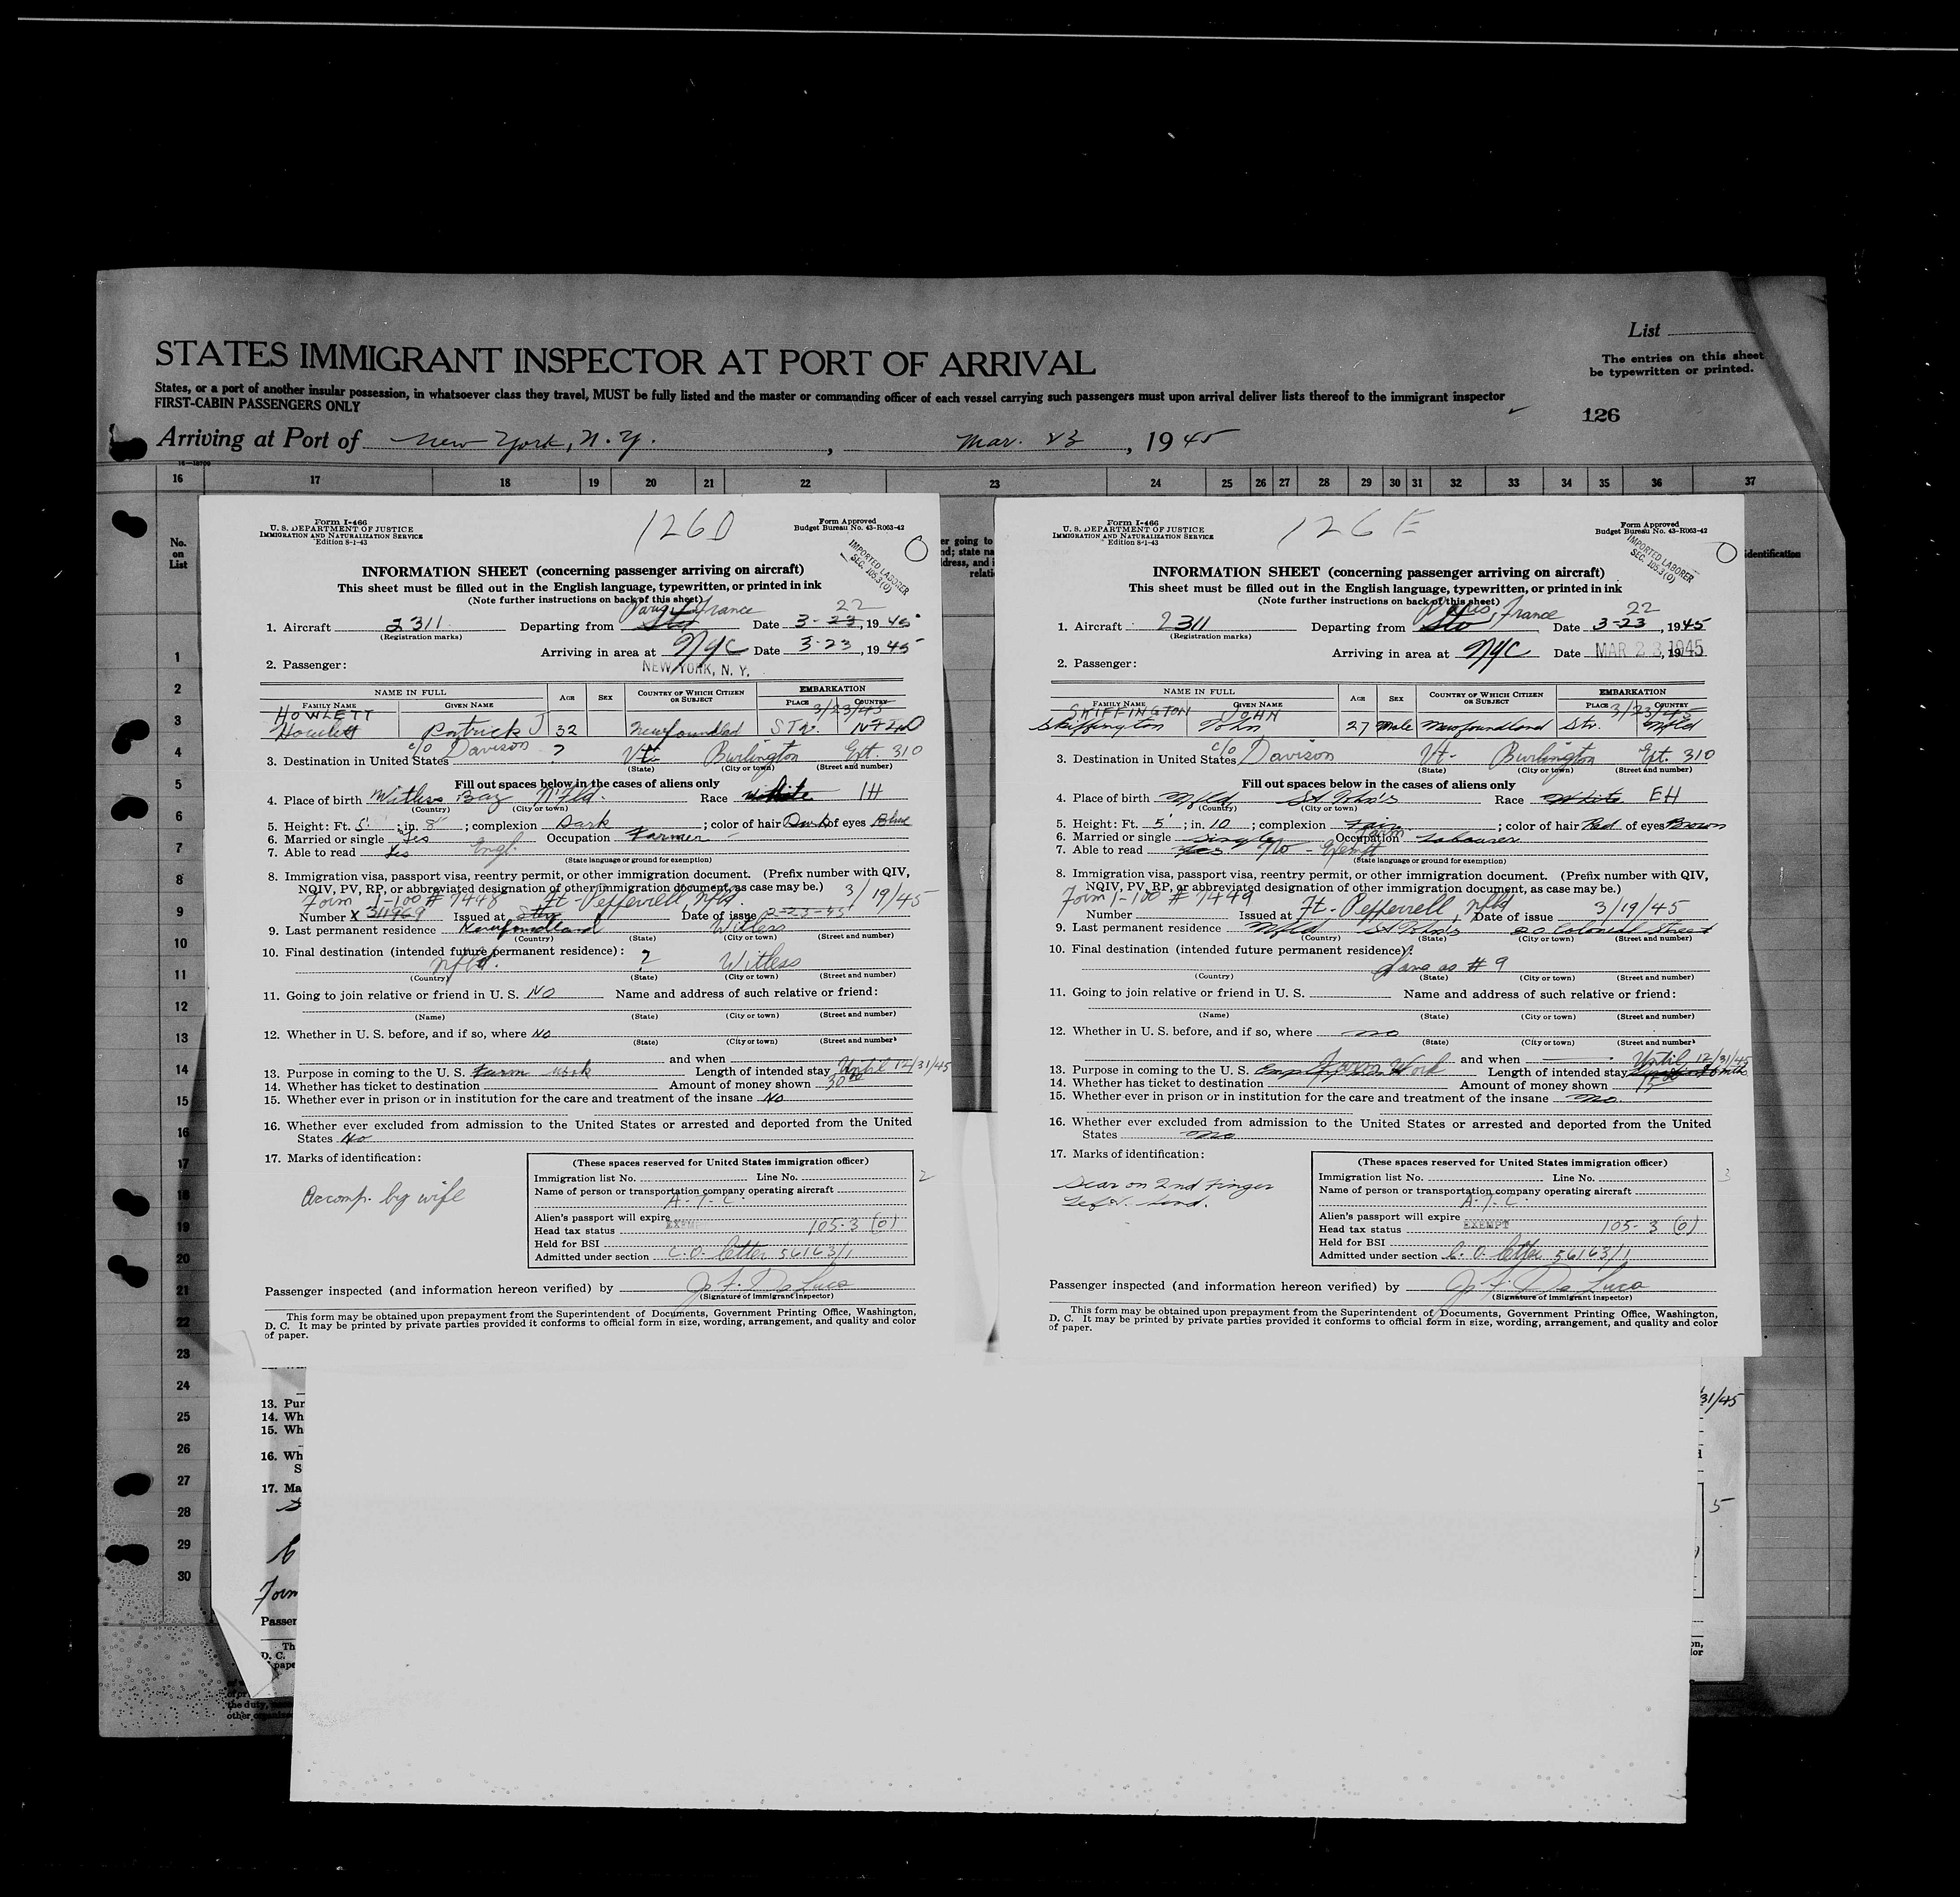 List
STATES IMMIGRANT INSPECTOR AT PORT OF ARRIVAL
The entries on this sheet
be typewritten or printed.
States, or a port of another insular possession, in whatsoever class they travel, MUST be fully listed and the master or commanding officer of each vessel carrying such passengers must upon arrival deliver lists thereof to the immigrant inspector
FIRST-CABIN PASSENGERS ONLY
126
Arriving at Port of New York, N.Y. , Mar. 23 , 1945
16 17 18 19 20 21 22 23 24 25 26 27 28 29 30 31 32 33 34 35 36 37
No.
on
List
1
2
3
4
5
6
7
8
9
10
11
12
13
14
15
16
17
18
19
20
21
22
23
24
25
26
27
28
29
30
Form I-466
U. S. DEPARTMENT OF JUSTICE
IMMIGRATION AND NATURALIZATION SERVICE
Edition 8-1-43
126D
Form Approved
Budget Bureau No. 43-R063-42
IMPORTED LABORER
SEC. 105.3 (0)
INFORMATION SHEET (concerning passenger arriving on aircraft)
This sheet must be filled out in the English language, typewritten, or printed in ink
(Note further instructions on back of this sheet)
Paris, France 22
1. Aircraft 2311 Departing from Sto Date 3-23, 1945
(Registration marks)
Arriving in area at NYC Date 3-23, 1945
NEW YORK, N. Y.
2. Passenger:
NAME IN FULL AGE SEX COUNTRY OF WHICH CITIZEN OR SUBJECT EMBARKATION
FAMILY NAME GIVEN NAME PLACE COUNTRY
HOWLETT 3/23/45
Howlett Patrick J 32 Newfoundland STV. NFLD
c/o Davison ? Vt. Burlington Ext. 310
3. Destination in United States
(State) (City or town) (Street and number)
Fill out spaces below in the cases of aliens only
4. Place of birth Witless Bay Nfld. Race White IH
(Country) (City or town)
5. Height: Ft. 5 ; in. 8 ; complexion Dark ; color of hair Dark of eyes Blue
6. Married or single Yes Occupation Farmer
7. Able to read Yes Engl.
(State language or ground for exemption)
8. Immigration visa, passport visa, reentry permit, or other immigration document. (Prefix number with QIV,
NQIV, PV, RP, or abbreviated designation of other immigration document, as case may be.)
Form I-100 # 7448 Ft. Pepperrell, Nfld. 3/19/45
Number X 311969 Issued at Date of issue 2-23-45
9. Last permanent residence Newfoundland Witless
(Country) (State) (City or town) (Street and number)
10. Final destination (intended future permanent residence):
Nfld. ? Witless
(Country) (State) (City or town) (Street and number)
11. Going to join relative or friend in U. S. NO Name and address of such relative or friend:
(Name) (State) (City or town) (Street and number)
12. Whether in U. S. before, and if so, where NO
(State) (City or town) (Street and number)
and when
13. Purpose in coming to the U. S. Farm work Length of intended stay Until 12/31/45
14. Whether has ticket to destination Amount of money shown 30.00
15. Whether ever in prison or in institution for the care and treatment of the insane No
16. Whether ever excluded from admission to the United States or arrested and deported from the United
States No
17. Marks of identification:
Accomp. by wife
(These spaces reserved for United States immigration officer)
Immigration list No. Line No. 2
Name of person or transportation company operating aircraft
A.T.C.
Alien's passport will expire
Head tax status EXEMPT 105-3 (0)
Held for BSI
Admitted under section C.O. letter 56163/1
Passenger inspected (and information hereon verified) by J. F. De Luca
(Signature of immigrant inspector)
This form may be obtained upon prepayment from the Superintendent of Documents, Government Printing Office, Washington,
D. C. It may be printed by private parties provided it conforms to official form in size, wording, arrangement, and quality and color
of paper.
Form I-466
U. S. DEPARTMENT OF JUSTICE
IMMIGRATION AND NATURALIZATION SERVICE
Edition 8-1-43
126E
Form Approved
Budget Bureau No. 43-R063-42
IMPORTED LABORER
SEC. 105.3 (0)
INFORMATION SHEET (concerning passenger arriving on aircraft)
This sheet must be filled out in the English language, typewritten, or printed in ink
(Note further instructions on back of this sheet)
Paris, France 22
1. Aircraft 2311 Departing from Sto Date 3-23, 1945
(Registration marks)
Arriving in area at NYC Date MAR 23, 1945
2. Passenger:
NAME IN FULL AGE SEX COUNTRY OF WHICH CITIZEN OR SUBJECT EMBARKATION
FAMILY NAME GIVEN NAME PLACE COUNTRY
SKIFFINGTON JOHN 3/23/45
Skiffington John 27 Male Newfoundland Stv. Nfld
c/o Davison Vt. Burlington Ext. 310
3. Destination in United States
(State) (City or town) (Street and number)
Fill out spaces below in the cases of aliens only
4. Place of birth Nfld St John's Race White EH
(Country) (City or town)
5. Height: Ft. 5 ; in. 10 ; complexion Fair ; color of hair Red of eyes Brown
6. Married or single Single Occupation Farm Labourer
7. Able to read Yes No - Exempt
(State language or ground for exemption)
8. Immigration visa, passport visa, reentry permit, or other immigration document. (Prefix number with QIV,
NQIV, PV, RP, or abbreviated designation of other immigration document, as case may be.)
Form I-100 # 7449
Number Issued at Ft. Pepperrell, Nfld Date of issue 3/19/45
9. Last permanent residence Nfld St John's 20 Colonial Street
(Country) (State) (City or town) (Street and number)
10. Final destination (intended future permanent residence):
Same as # 9
(Country) (State) (City or town) (Street and number)
11. Going to join relative or friend in U. S. Name and address of such relative or friend:
(Name) (State) (City or town) (Street and number)
12. Whether in U. S. before, and if so, where no
(State) (City or town) (Street and number)
and when
13. Purpose in coming to the U. S. Farm Work Length of intended stay Until 12/31/45
14. Whether has ticket to destination Amount of money shown
15. Whether ever in prison or in institution for the care and treatment of the insane no
16. Whether ever excluded from admission to the United States or arrested and deported from the United
States no
17. Marks of identification:
Scar on 2nd Finger
Left
(These spaces reserved for United States immigration officer)
Immigration list No. Line No. 3
Name of person or transportation company operating aircraft
A.T.C.
Alien's passport will expire
Head tax status EXEMPT 105-3 (0)
Held for BSI
Admitted under section C.O. letter 56163/1
Passenger inspected (and information hereon verified) by J. F. De Luca
(Signature of immigrant inspector)
This form may be obtained upon prepayment from the Superintendent of Documents, Government Printing Office, Washington,
D. C. It may be printed by private parties provided it conforms to official form in size, wording, arrangement, and quality and color
of paper.
identification
13. Pur
14. Wh
15. Wh
16. Wh
S
17. Ma
Form
Passer
Th
D. C.
31/45
5